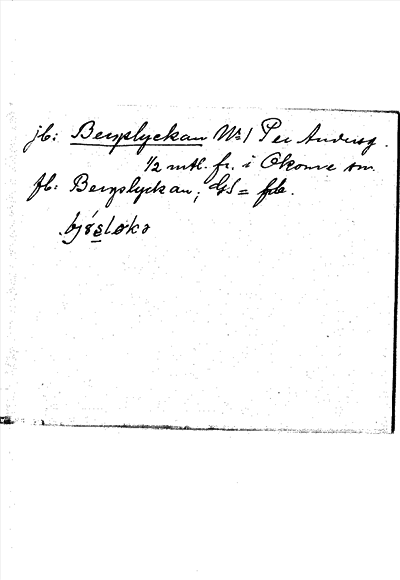 jb: Bergslyckan Nr 1 Per Andersg.
1/2 mtl. fr. i Okome sn.
fb: Bergslyckan; GS = fb.
bjäsløka